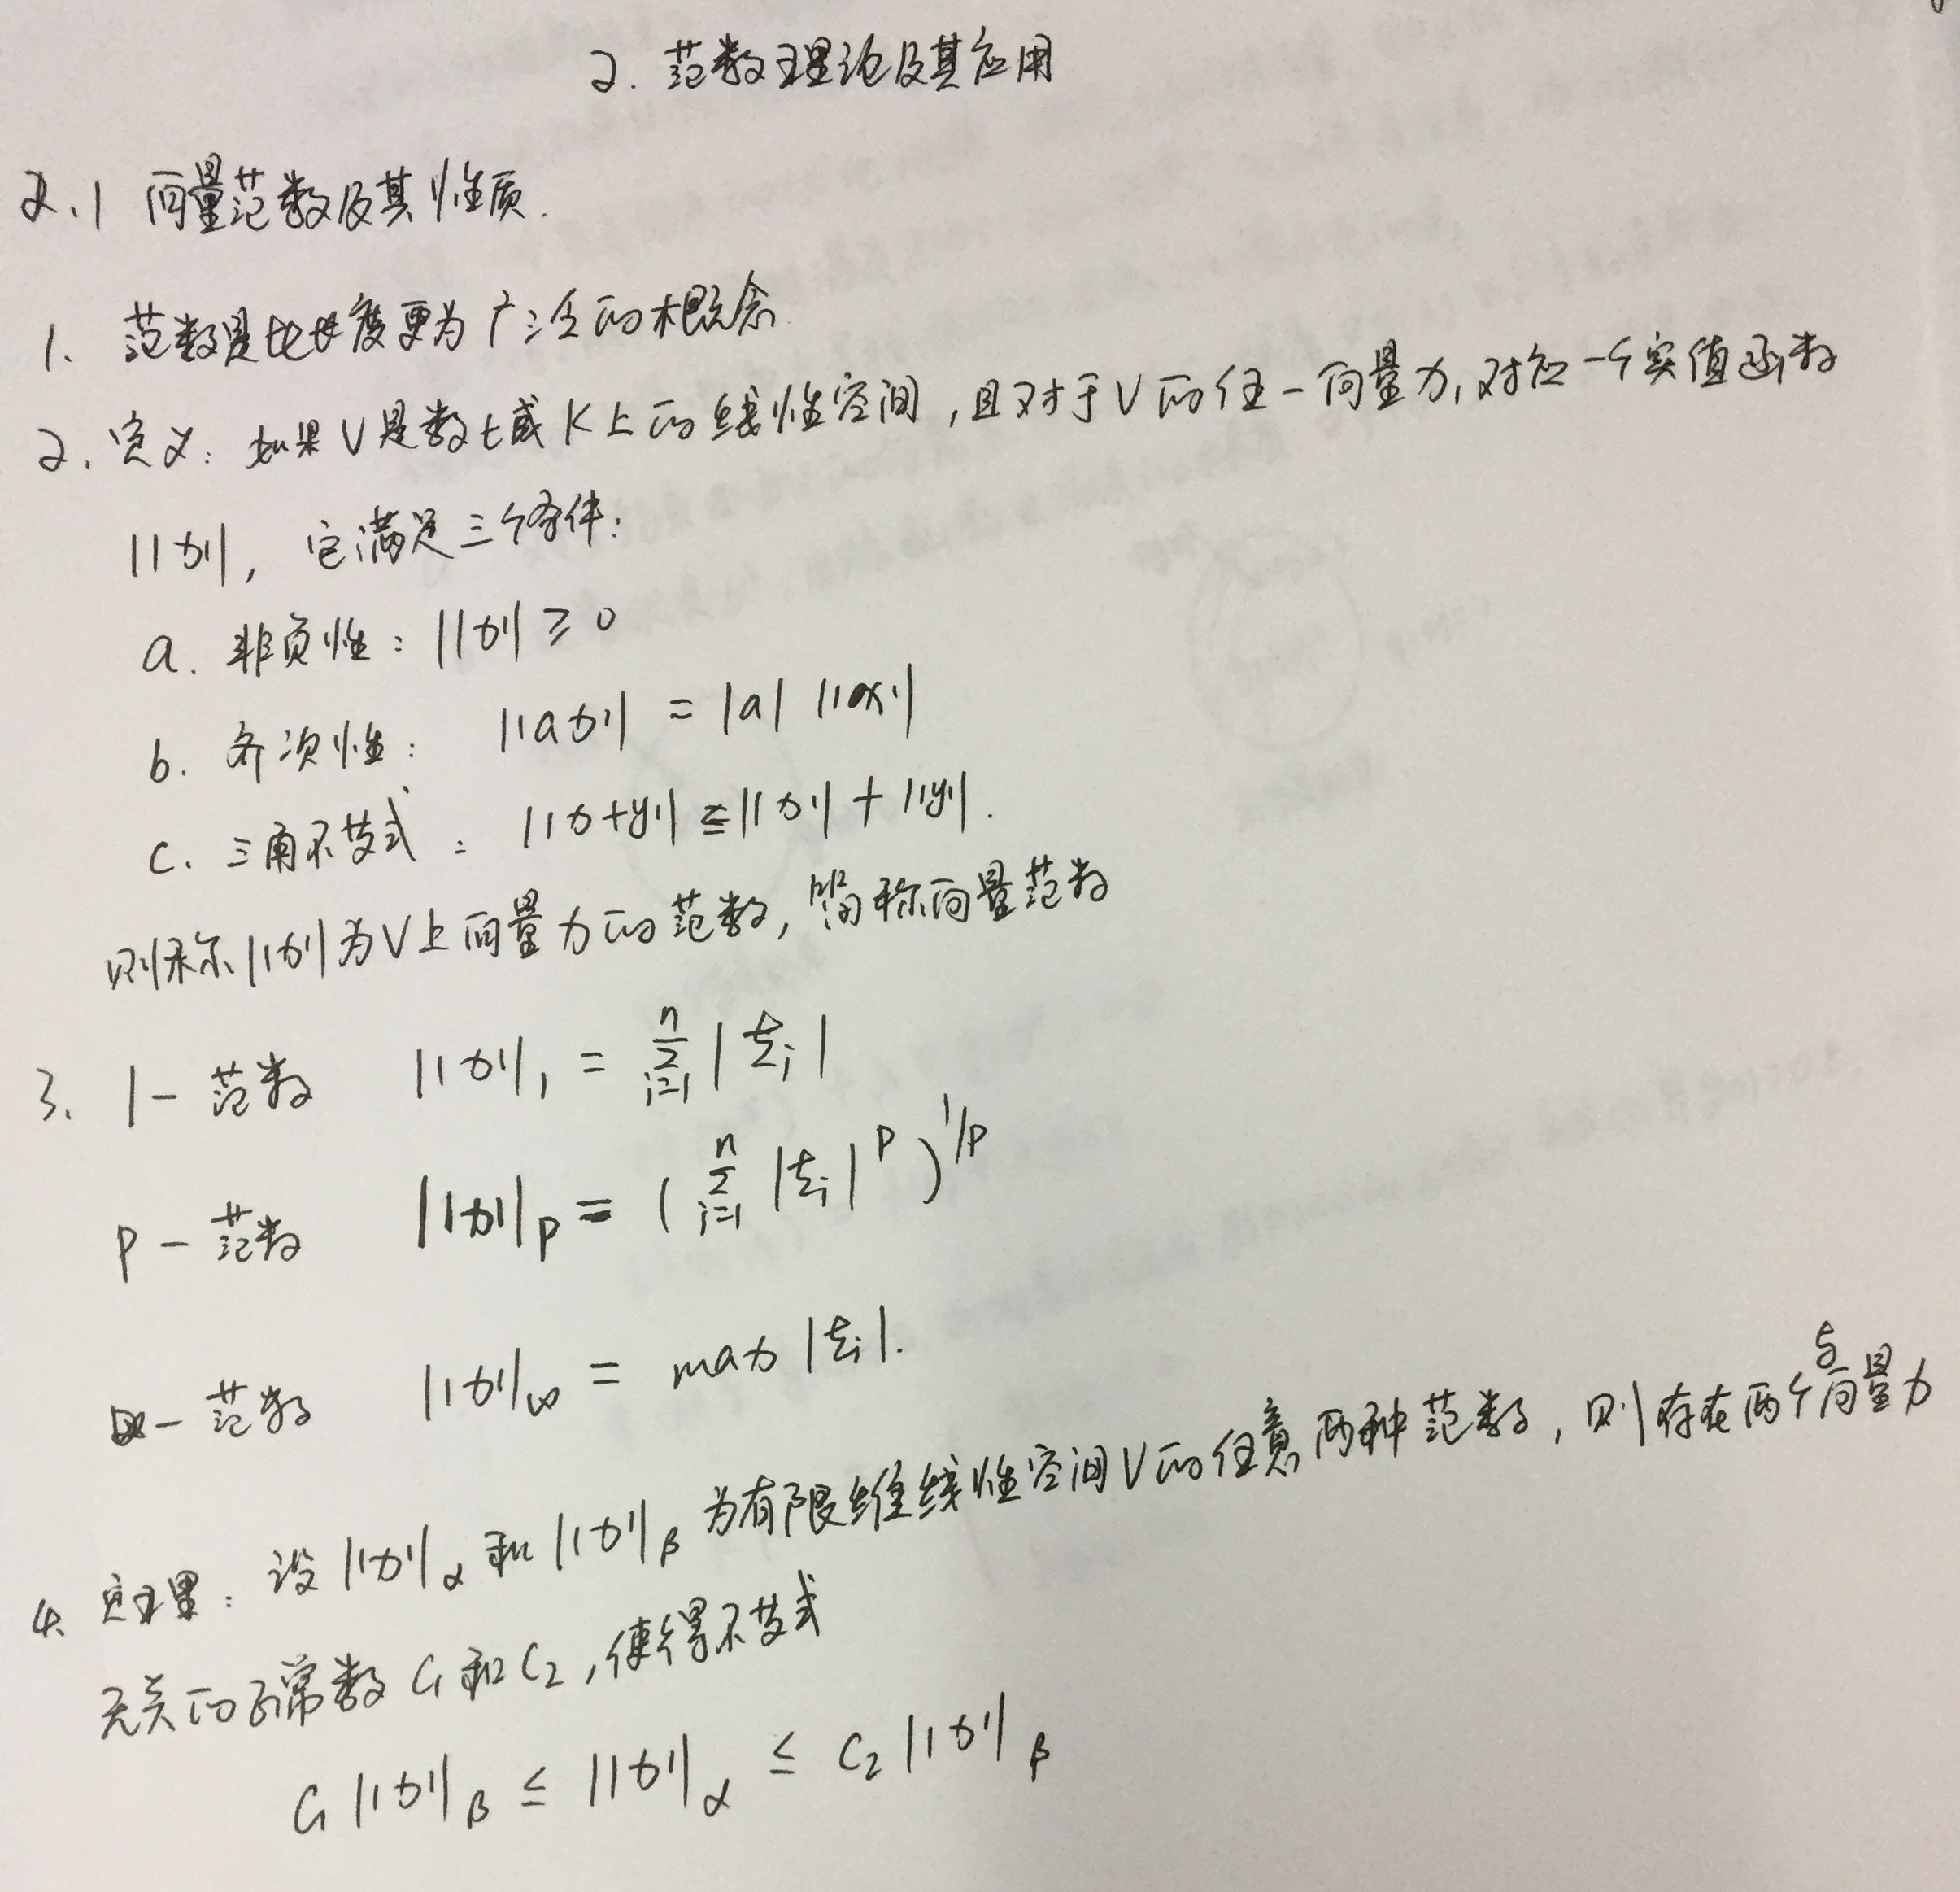 2. 范数理论及其应用
2.1 向量范数及其性质.
1. 范数是比长度更为广泛的概念
2. 定义: 如果V是数域K上的线性空间,且对于V的任一向量x,对应一个实值函数
||x||, 它满足三个条件:
a. 非负性: ||x|| ≥ 0
b. 齐次性: ||ax|| = |a| ||x||
c. 三角不等式: ||x+y|| ≤ ||x|| + ||y||.
则称||x||为V上向量x的范数, 简称向量范数
3. 1-范数 ||x||₁ = \sum_{i=1}^{n} |ξ_i|
p-范数 ||x||_p = (\sum_{i=1}^{n} |ξ_i|^p)^{1/p}
∞-范数 ||x||_∞ = max |ξ_i|.
4. 定理: 设||x||_α 和 ||x||_β 为有限维线性空间V的任意两种范数, 则存在两个与向量x
无关的正常数 C₁和C₂, 使得不等式
C₁||x||_β ≤ ||x||_α ≤ C₂||x||_β